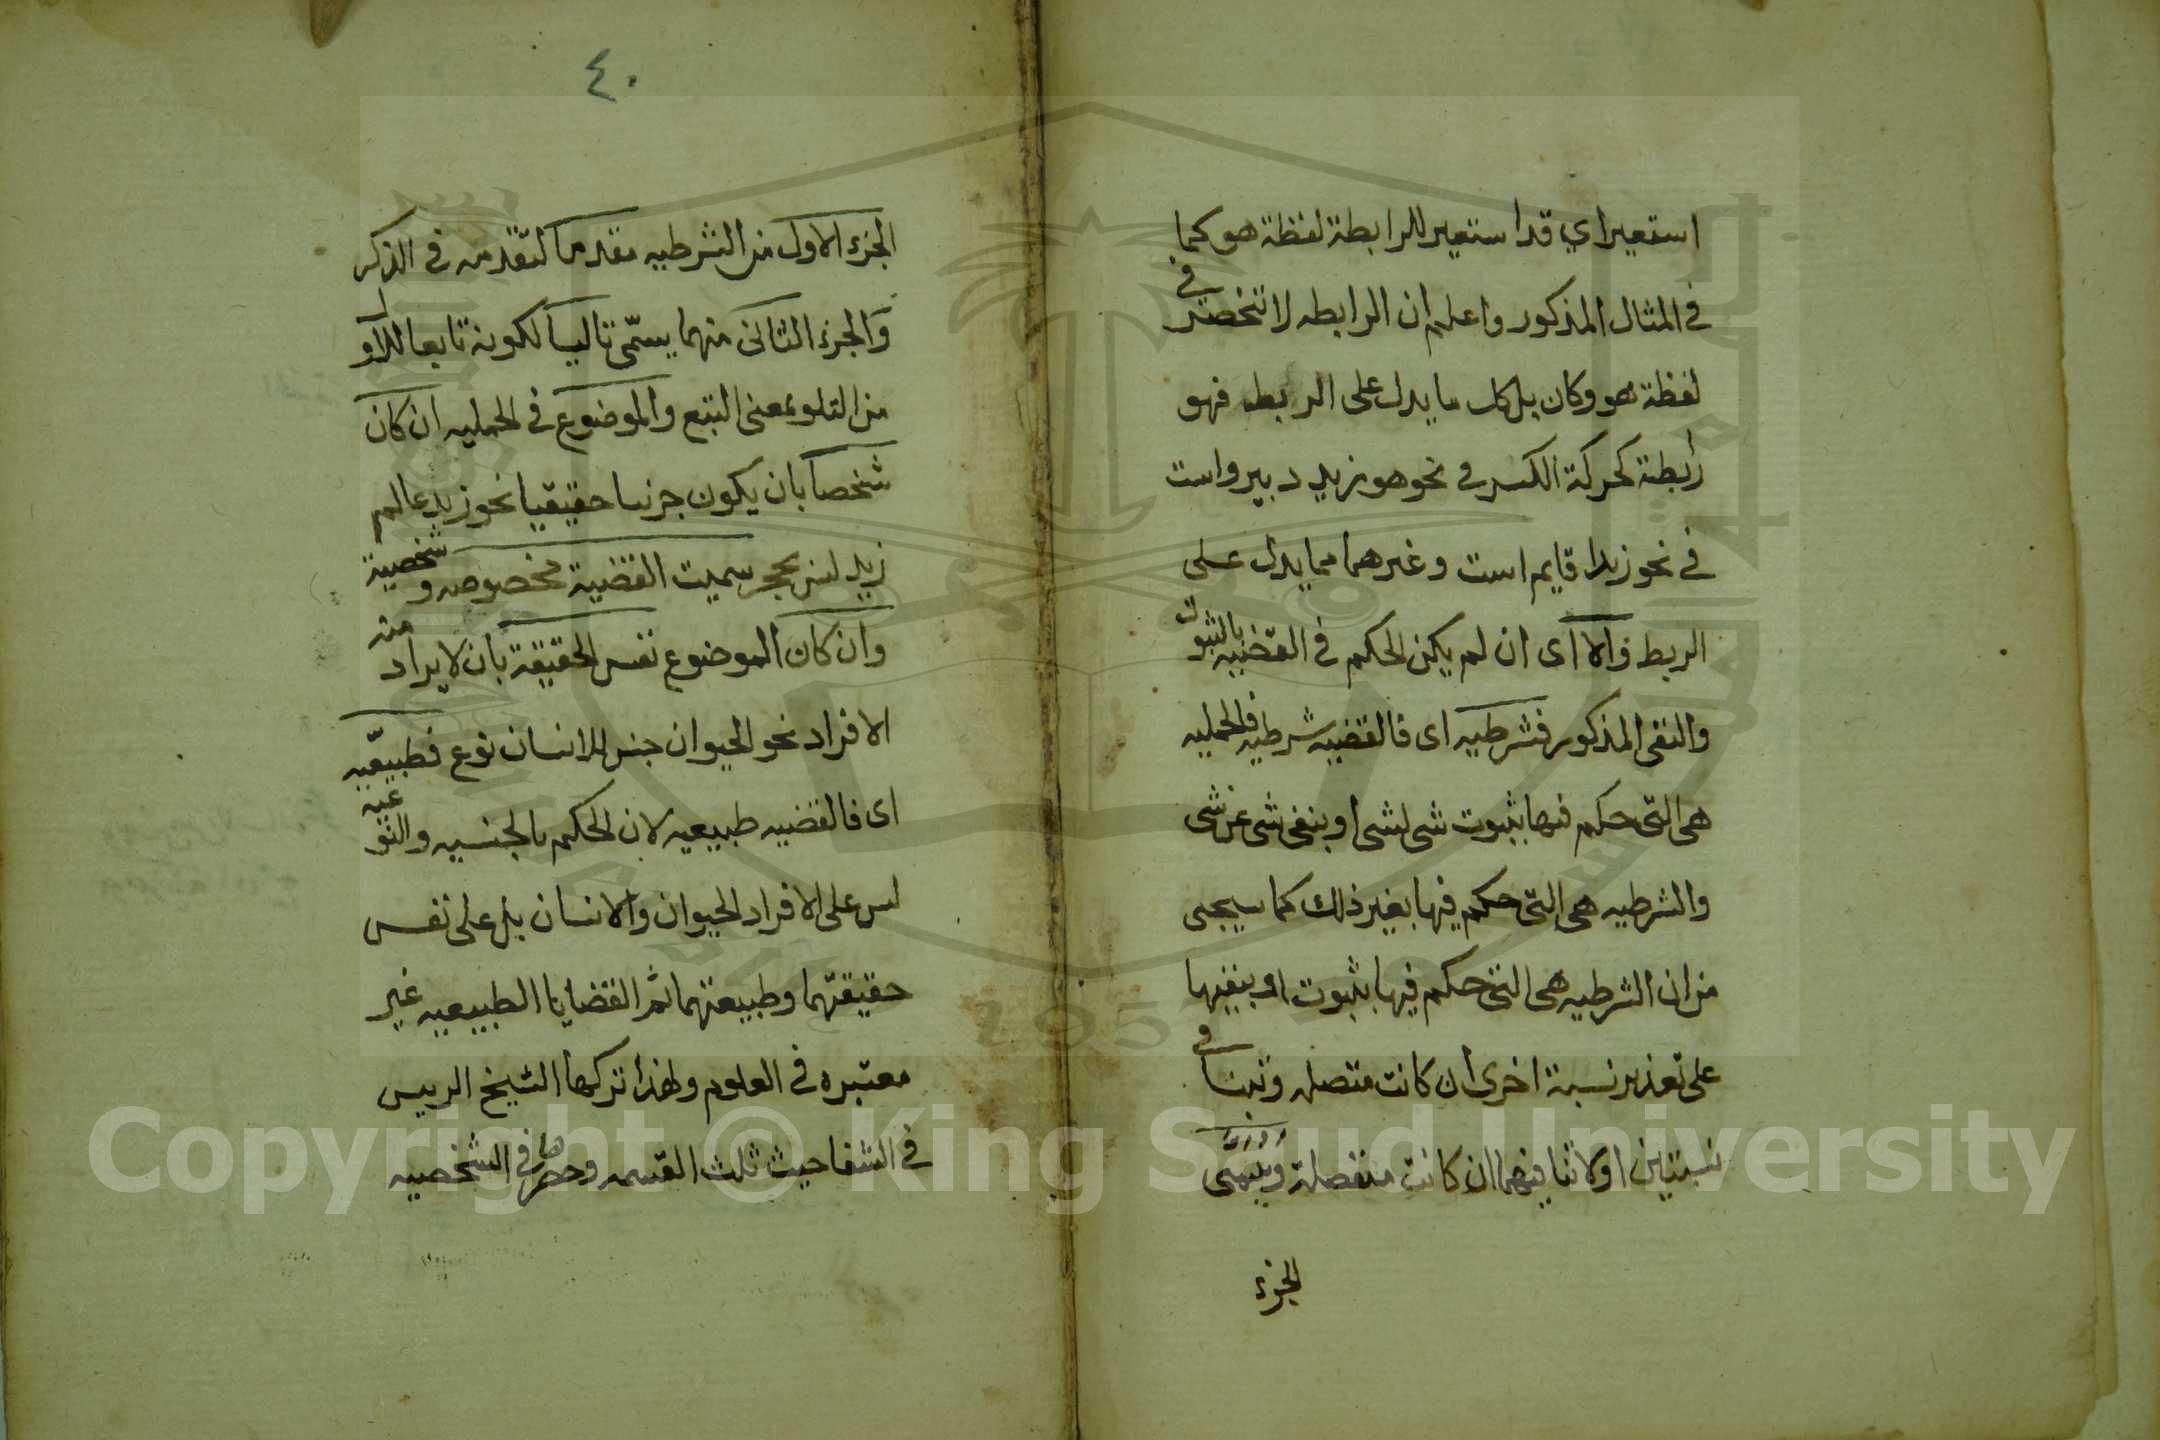 استعير اي قد استعير للرابطة لفظة هو كما
في المثال المذكور واعلم ان الرابطه لا تنحصر في
لفظة هو وكان بل كل ما يدل على الربط فهو
رابطة كحركة الكسر في نحو هو زيد دبير واست
في نحو زيدا قايم است وغيرهما مما يدل على
الربط والا اى ان لم يكن الحكم في القضيه بالثبوت
والنفى المذكور فشرطيه اى فالقضيه شرطيه فالحمليه
هى التى حكم فيها بثبوت شى لشى او بنفى شى عن شى
والشرطيه هى التى حكم فيها بغير ذلك كما سيجى
من ان الشرطيه هى التى حكم فيها بثبوت او بنفيها
على تقدير نسبة اخرى ان كانت متصله وتنا في
نسبتين او لا تنا فيهما ان كانت منفصلة ويسمى
الجزء
٤٠
الجزء الاول من الشرطيه مقدما لتقدمه في الذكر
والجزء الثانى منهما يسمّى تاليا لكونه تابعا للاول
من التلو بمعنى التبع والموضوع في الحمليه ان كان
شخصا بان يكون جزييا حقيقيا نحو زيد عالم
زيد ليس بحجر سميت القضية مخصوصه وشخصية
وان كان الموضوع نفس الحقيقة بان لا يراد منه
الافراد نحو الحيوان جنس للانسان نوع فطبيعّيه
اى فالقضيه طبيعيه لان الحكم بالجنسيه والنوعيه
ليس على الافراد الحيوان والانسان بل على نفس
حقيقتهما وطبيعتهما ثم القضايا الطبيعيه غير
معتبره في العلوم ولهذا تركها الشيخ الرييس
في الشفا حيث ثلث القسمه وحصرها في الشخصيه
Copyright © King Saud University